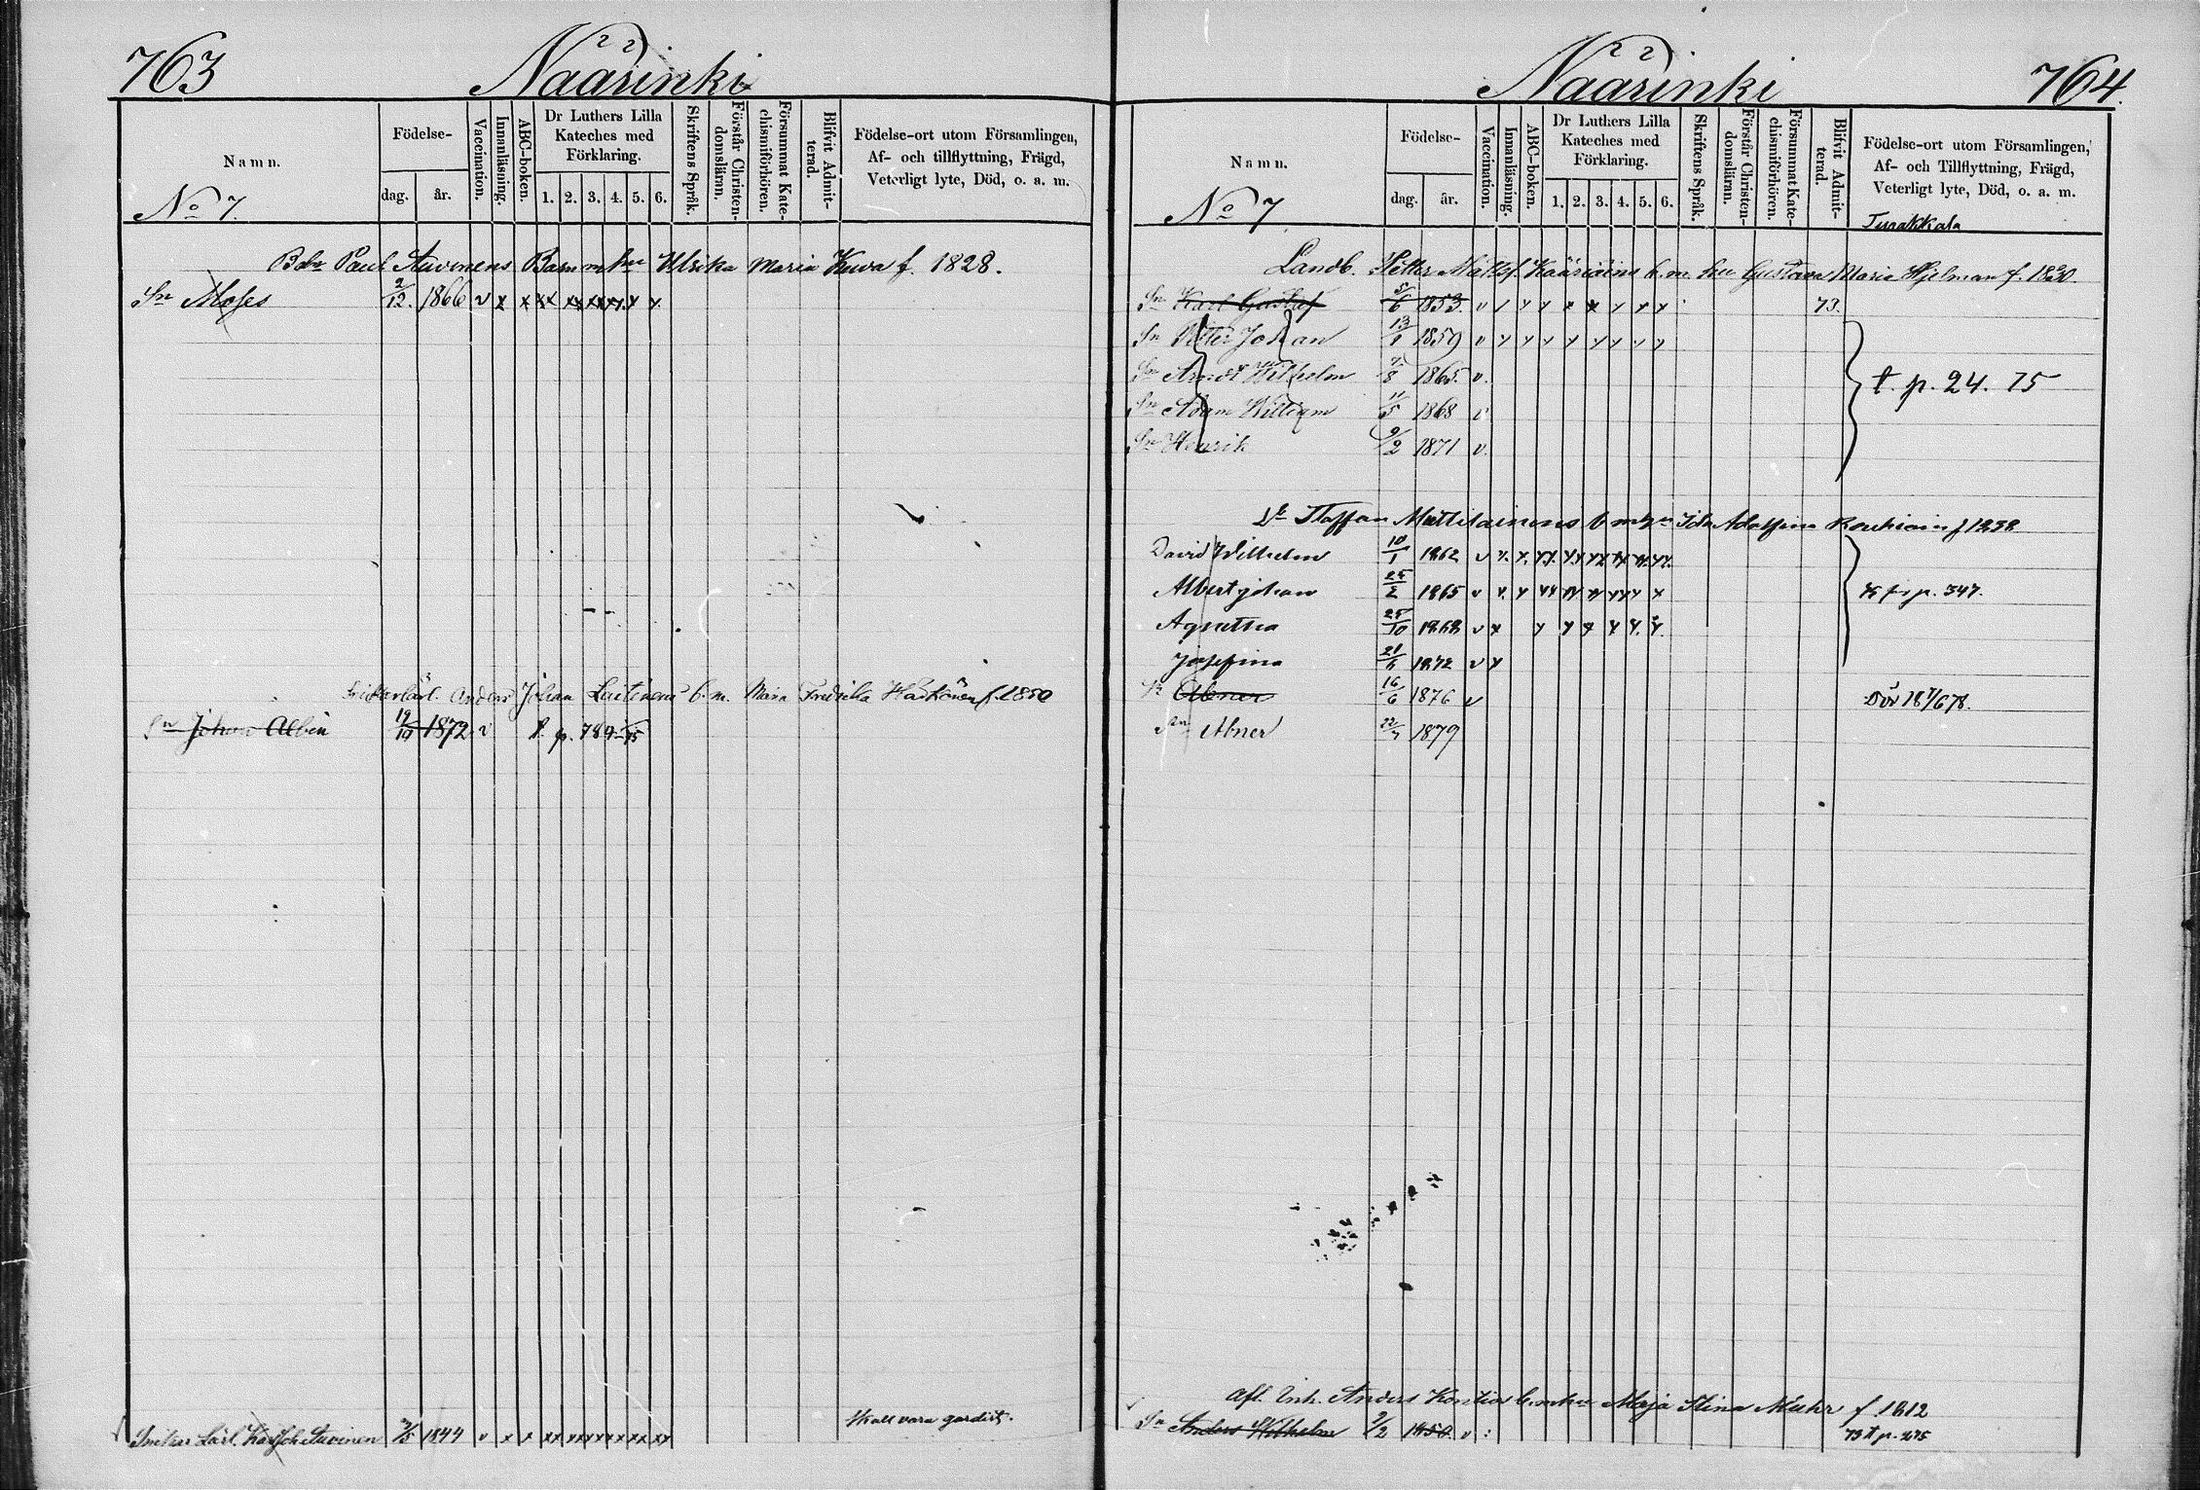 763
Näärinki
Namn.
Födelse-
dag.
år.
Vaccination.
Innanläsning.
ABC-boken.
Dr Luthers Lilla
Kateches med
Förklaring.
1. 2. 3. 4. 5. 6.
Skriftens Språk.
Förstår Christen-
domsläran.
Försummat Kate-
chismiförhören.
Blifvit Admit-
terad.
Födelse-ort utom Församlingen,
Af- och tillflyttning, Frägd,
Veterligt lyte, Död, o. a. m.
No 7.
Paul Auvinens Barn m hu Ulrika Maria Kuva f. 1828.
Sn Moses 2/12. 1866 v x x xx xx xx xx x x
Anders Johan Laitinens b. m. Maria Fredrika Harkönen f. 1850
Sn Johan Albin 19/10 1872 v t. p. 789-75
Karl Joh Auvinen 1844 v x x xx xx xx xx xx xx
Skall vara gardist.
764.
Näärinki
Namn.
Födelse-
dag.
år.
Vaccination.
Innanläsning.
ABC-boken.
Dr Luthers Lilla
Kateches med
Förklaring.
1. 2. 3. 4. 5. 6.
Skriftens Språk.
Förstår Christen-
domsläran.
Försummat Kate-
chismiförhören.
Blifvit Admit-
terad.
Födelse-ort utom Församlingen,
Af- och Tillflyttning, Frägd,
Veterligt lyte, Död, o. a. m.
No 7
Turakkala
Landb. Petter Matsf. Kääriäins b. m. hu Gustava Maria Hjelman f. 1830.
Sn Karl Gustaf 5/6 1853. v 73.
Sn Petter Johan 13/1 1859 v
Wilhelm 7/8 1865. v.
Sn Adam William 11/5 1868 v
Sn Henrik 9/2 1871 v.
t. p. 24. 75
Staffan Mattilainens b m hu Ida Adolfina f 1838
David Wilhelm 10/1 1862 v
Albert Johan 25/2 1865 v
Agnetha 25/10 1868 v x
Josefina 21/6 1872 v
p. 347.
Abner 16/6 1876 v Död 18 7/6 78.
Sn Abner 22/7 1879
Afl. Inh. Anders Kontios b. m hu Maja Stina Muhr f 1812
Sn Anders Wilhelm 9/2 1850. v
73 t p. 275